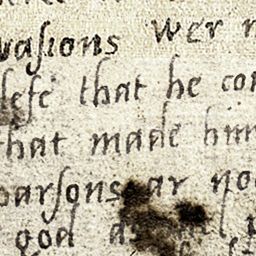 vasions wer
lese that he con
that made him
parsons ar no
god as